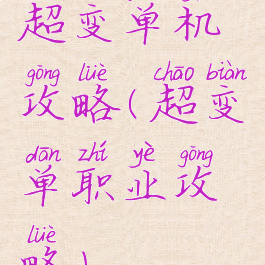 超变单机
gōng lüè chāo biàn
攻略(超变
dān zhí yè gōng
单职业攻
lüè
略)